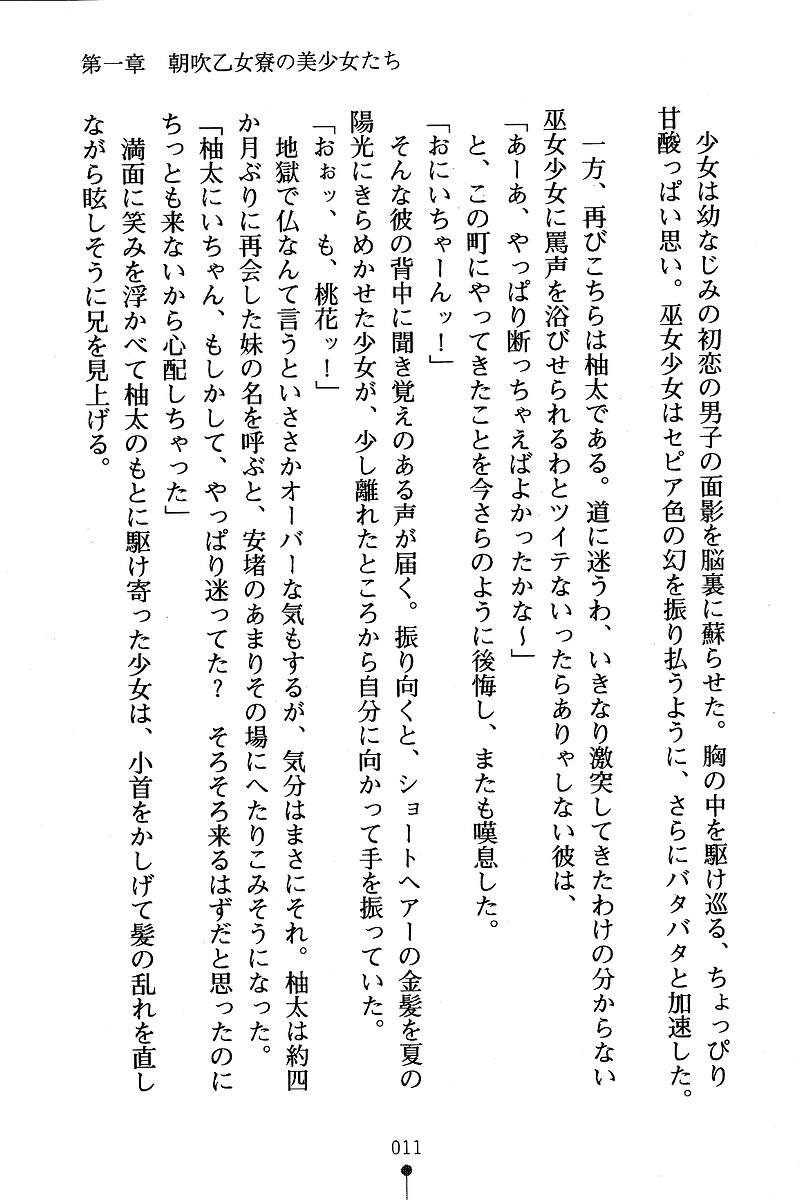 第一章　朝吹乙女寮の美少女たち
　少女は幼なじみの初恋の男子の面影を脳裏に蘇らせた。胸の中を駆け巡る、ちょっぴり
甘酸っぱい思い。巫女少女はセピア色の幻を振り払うように、さらにバタバタと加速した。
　一方、再びこちらは柚太である。道に迷うわ、いきなり激突してきたわけの分からない
巫女少女に罵声を浴びせられるわとツイテないったらありゃしない彼は、
「あーあ、やっぱり断っちゃえばよかったかな～」
　と、この町にやってきたことを今さらのように後悔し、またも嘆息した。
「おにいちゃーんッ！」
　そんな彼の背中に聞き覚えのある声が届く。振り向くと、ショートヘアーの金髪を夏の
陽光にきらめかせた少女が、少し離れたところから自分に向かって手を振っていた。
「おぉッ、も、桃花ッ！」
　地獄で仏なんて言うといささかオーバーな気もするが、気分はまさにそれ。柚太は約四
か月ぶりに再会した妹の名を呼ぶと、安堵のあまりその場にへたりこみそうになった。
「柚太にいちゃん、もしかして、やっぱり迷ってた？　そろそろ来るはずだと思ったのに
ちっとも来ないから心配しちゃった」
　満面に笑みを浮かべて柚太のもとに駆け寄った少女は、小首をかしげて髪の乱れを直し
ながら眩しそうに兄を見上げる。
011